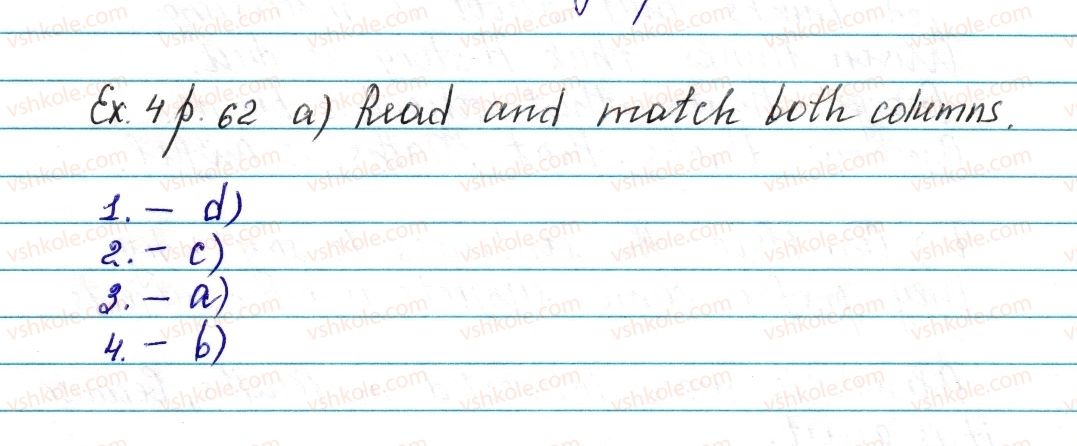 Ex. 4 p. 62 a) Read and match both columns.
1. – d)
2. – c)
3. – a)
4. – b)